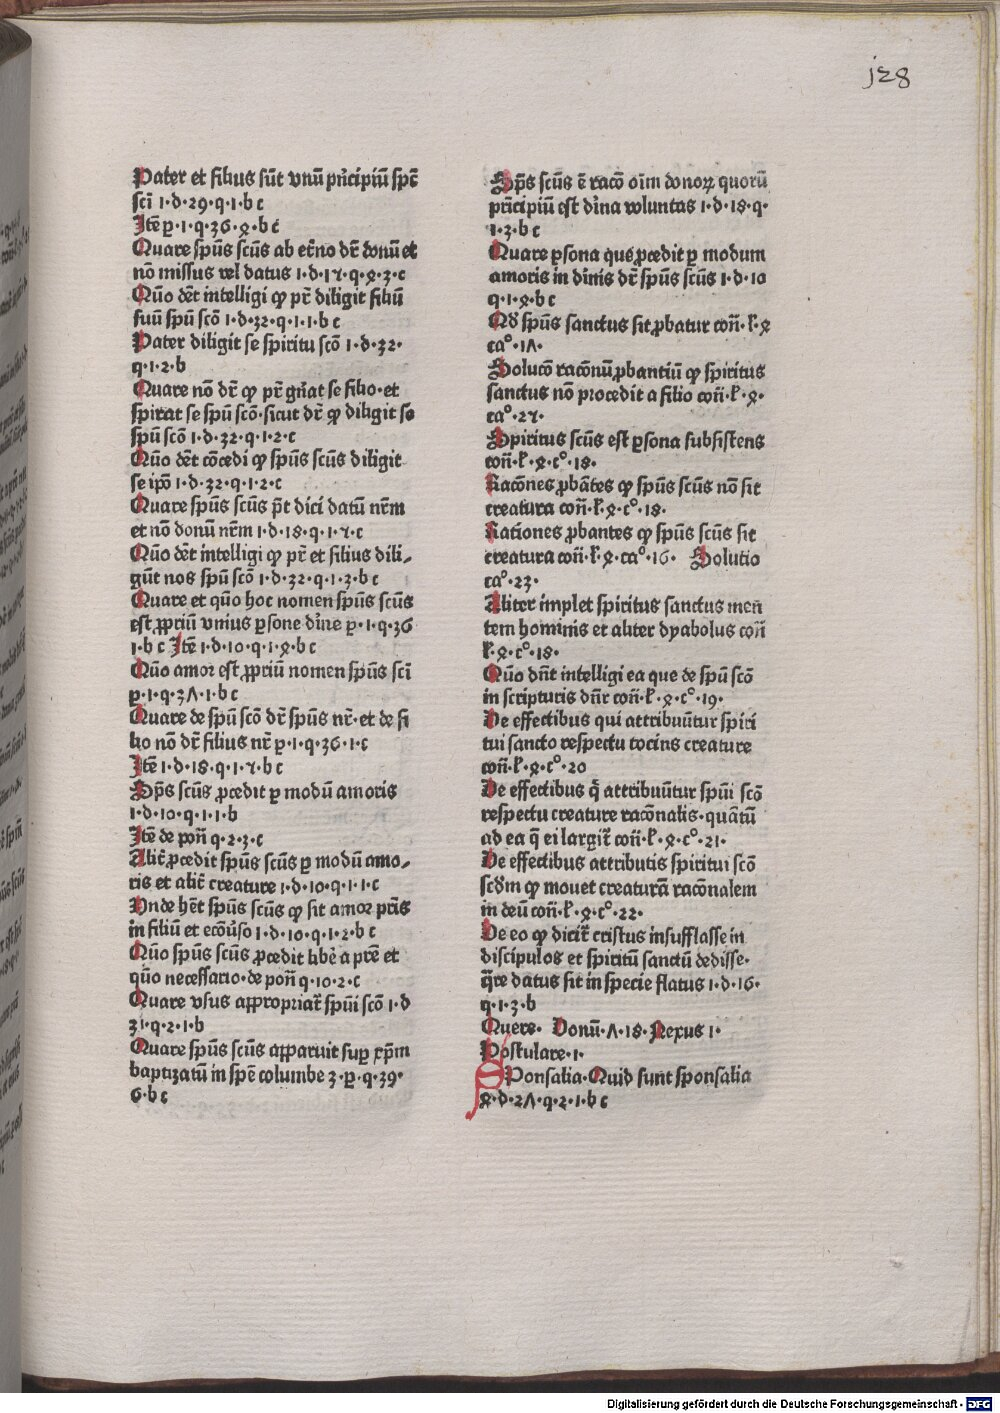 j28
Pater et filius sūt vnū pn̄cipiū spc̄
sci 1·d·29·q·1·b c
Itē p·1·q·36·ꝝ·b c
Quare spūs scūs ab et̄no dr̄ donū et
nō missus vel datus 1·d·17·q·ꝝ·3·c
Quō dēt intelligi qꝫ pr̄ diligit filiū
suū spū scō 1·d·32·q·1·1·b c
Pater diligit se spiritu scō 1·d·32·
q·1·2·b
Quare nō dr̄ qꝫ pr̄ gn̄at se filio·et
spirat se spū scō·sicut dr̄ qꝫ diligit se
spū scō 1·d·32·q·1·2·c
Quō dēt cōcedi qꝫ spūs scūs diligit
se ipō 1·d·32·q·1·2·c
Quare spūs scūs pt̄ dici datū nr̄m
et nō donū nr̄m 1·d·18·q·1·7·c
Quō dēt intelligi qꝫ pr̄ et filius dili⸗
gūt nos spū scō 1·d·32·q·1·3·b c
Quare et quō hoc nomen spūs scūs
est ꝓpriū vnius ꝑsone dīne p·1·q·36
1·b c Itē 1·d·10·q·1·ꝝ·b c
Quō amor est ꝓpriū nomen spūs sci
p·1·q·3Λ·1·b c
Quare de spū scō dr̄ spūs nr̄·et de fi
lio nō dr̄ filius nr̄ p·1·q·36·1·c
Itē 1·d·18·q·1·7·b c
Sp̄s scūs ꝓcedit ꝑ modū amoris
1·d·10·q·1·1·b
Itē de pon̄ q·2·3·c
Alit̄ ꝓcedit spūs scūs ꝑ modū amo⸗
ris et alit̄ creature 1·d·10·q·1·1·c
Vnde hēt spūs scūs qꝫ sit amor pr̄is
in filiū et ecōuso 1·d·10·q·1·2·b c
Quō spūs scūs ꝓcedit libē a pr̄e et
quō necessario·de pon̄ q·10·2·c
Quare vsus appropriat̄ spūi scō 1·d
31·q·2·1·b
Quare spūs scūs apparuit sup xp̄m
baptizatū in spē columbe 3·p·q·39·
6·b c
Sp̄s scūs ē racō oīm donoꝝ quorū
pn̄cipiū est dīna voluntas 1·d·18·q·
1·3·b c
Quare ꝑsona que ꝓcedit ꝑ modum
amoris in diuinis dr̄ spūs scūs 1·d·10
q·1·ꝝ·b c
Qd̄ spūs sanctus sit ꝓbatur con̄·l̄·ꝝ
ca°·1Λ·
Solucō racōnū ꝓbantiū qꝫ spiritus
sanctus nō procedit a filio con̄·l̄·ꝝ·
ca°·27·
Spiritus scūs est ꝑsona subsistens
con̄·l̄·ꝝ·c°·18·
Racōnes ꝓbātes qꝫ spūs scūs nō sit
creatura con̄·l̄·ꝝ·c°·18·
Rationes ꝓbantes qꝫ spūs scūs sit
creatura con̄·l̄·ꝝ·ca°·16· Solutio
ca°·23·
Aliter implet spiritus sanctus men
tem hominis et aliter dyabolus con̄
l̄·ꝝ·c°·18·
Quō dn̄t intelligi ea que de spū scō
in scripturis dn̄r con̄·l̄·ꝝ·c°·19·
De effectibus qui attribuūtur spiri
tui sancto respectu tocius creature
con̄·l̄·ꝝ·c°·20
De effectibus q̄ attribuūtur spūi scō
respectu creature racōnalis·quātū
ad ea q̄ ei largit̄ con̄·l̄·ꝝ·c°·21·
De effectibus attributis spiritui scō
scd̄m qꝫ mouet creaturā racōnalem
in deū con̄·l̄·ꝝ·c°·22·
De eo qꝫ dicit̄ cristus insufflasse in
discipulos et spiritū sanctū dedisse·
q̄re datus sit in specie flatus 1·d·16·
q·1·3·b
Quere· Donū·Λ·18· Nexus 1·
Postulare·1·
SPonsalia·Quid sunt sponsalia
ꝝ·d·2Λ·q·2·1·b c
Digitalisierung gefördert durch die Deutsche Forschungsgemeinschaft - DFG